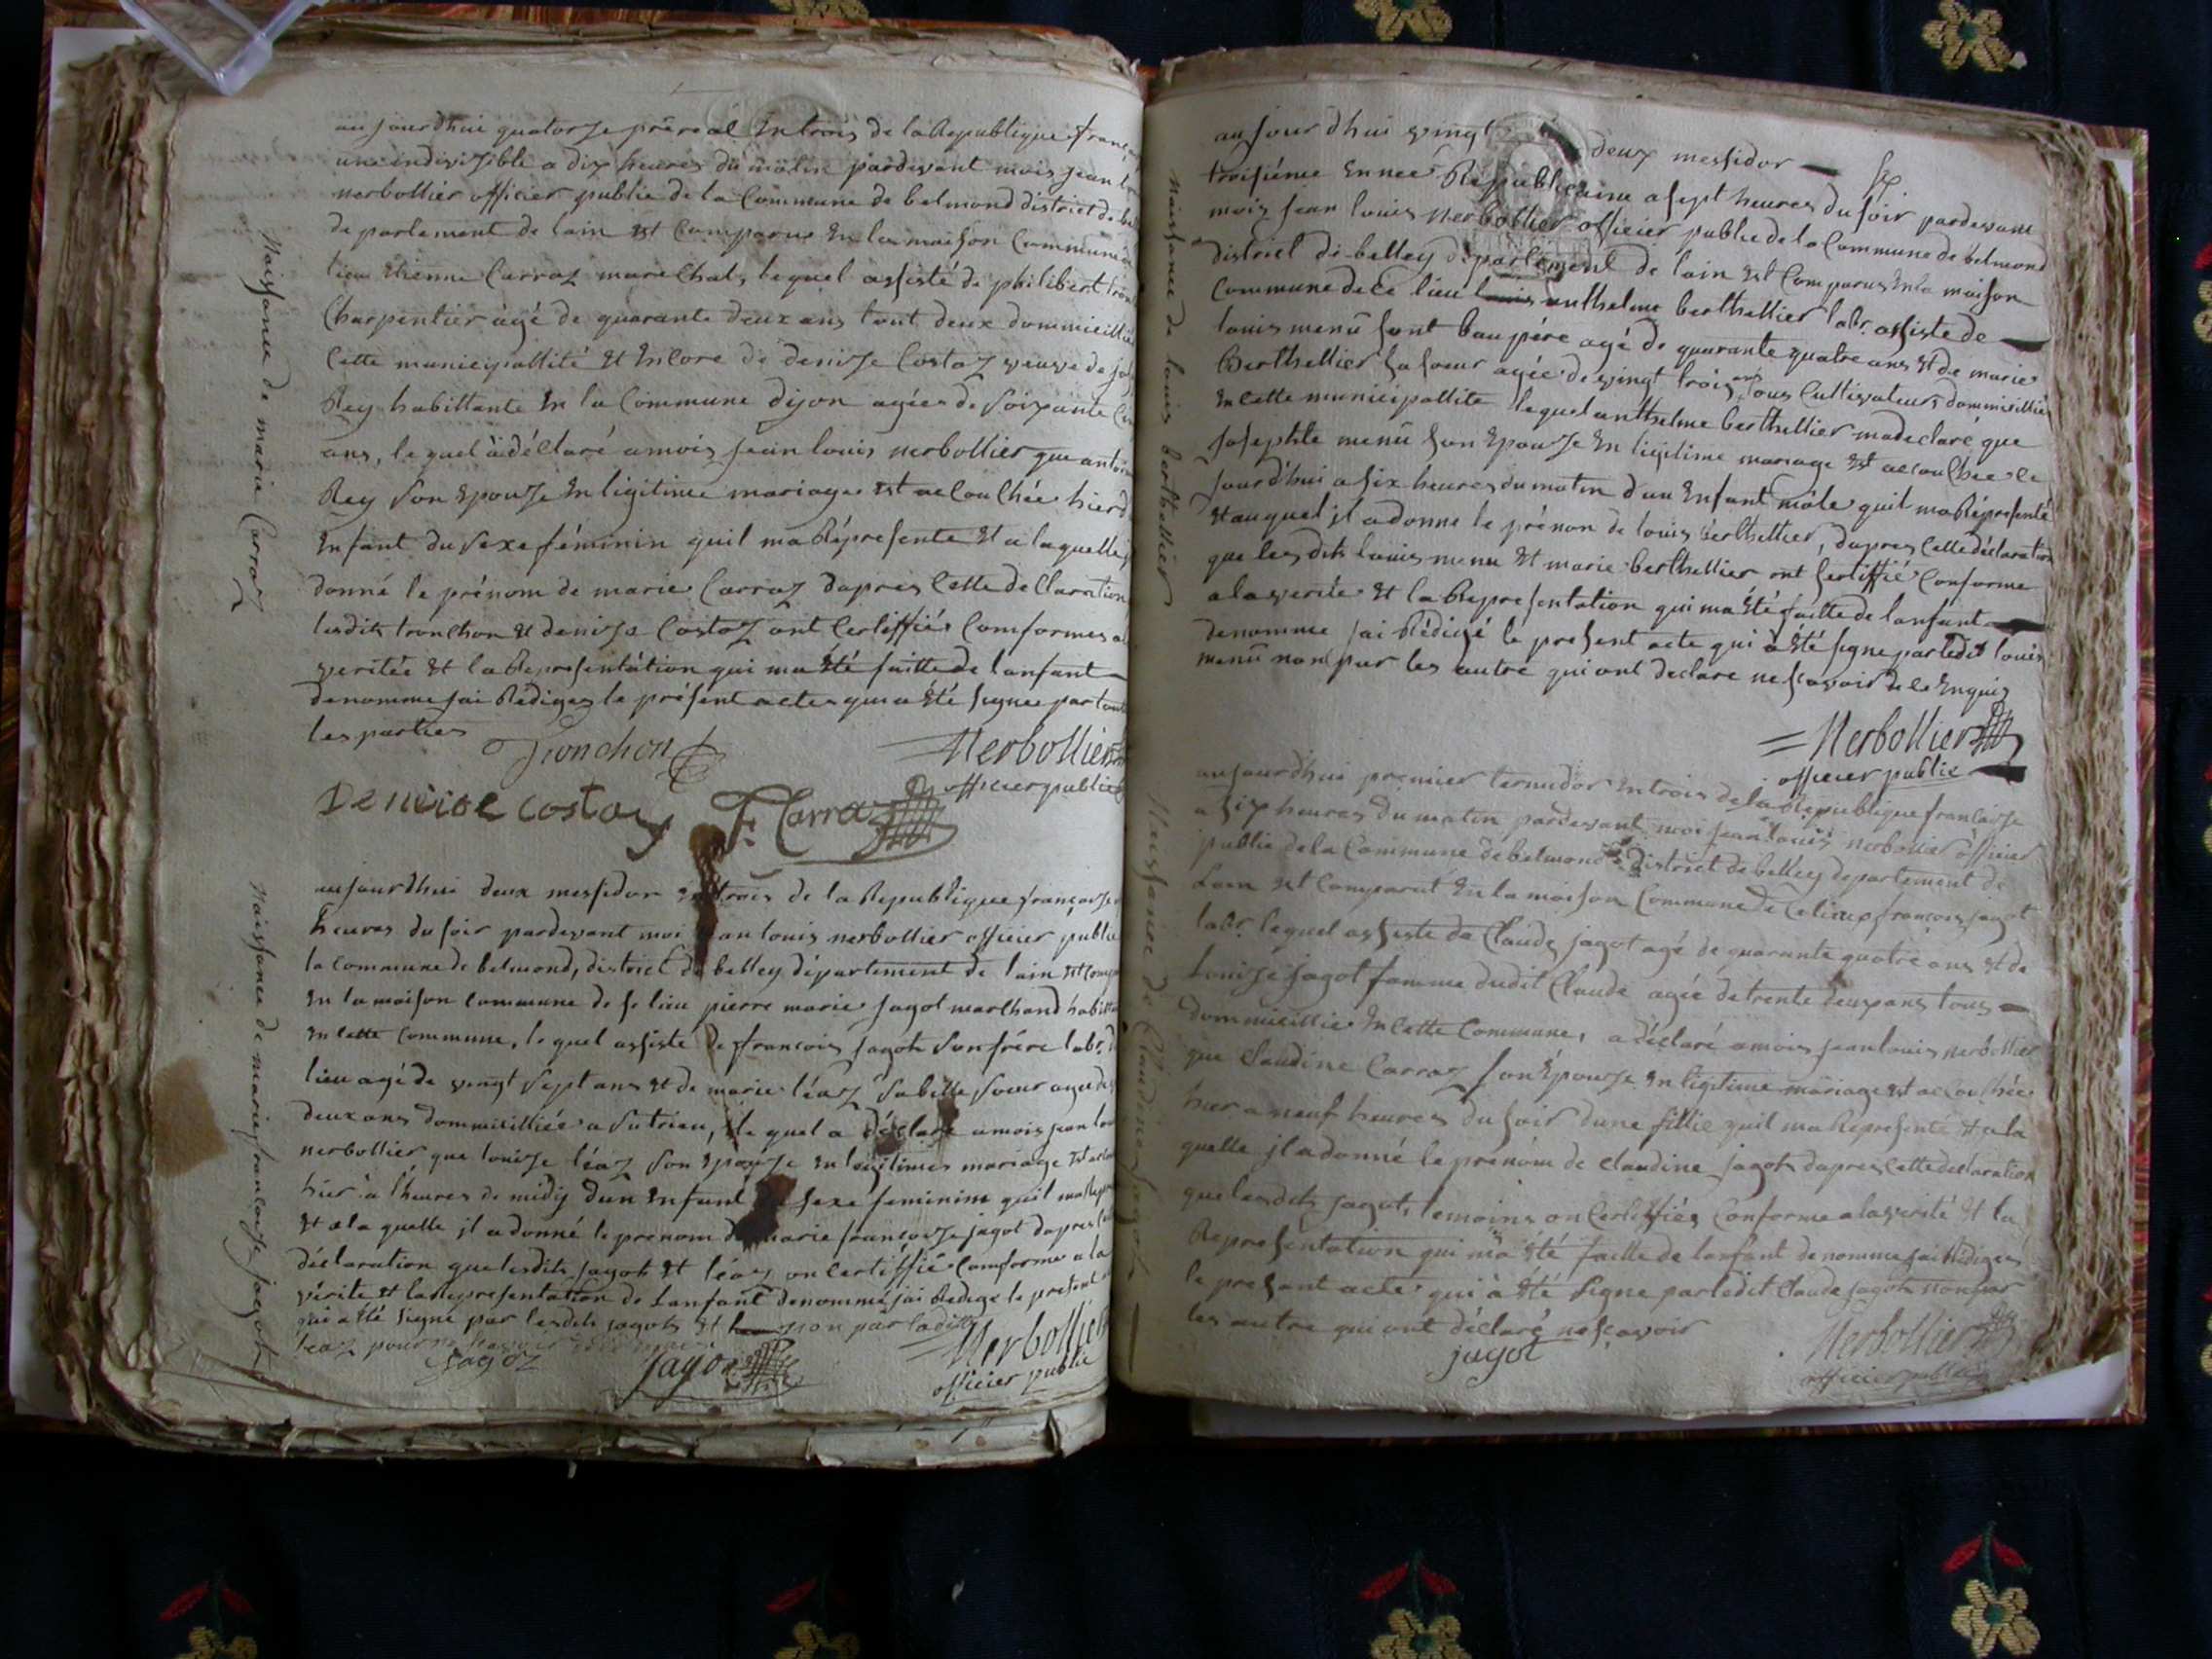 Naissance de marie Carraz
aujourdhui quatorze préreal En trois de la Republique franç
une indivisible a dix heures du matin pardevant mois jean
nerbollier officier public de la Commune de belmond district de
departement de lain Est Comparus En la maison Commune
lieu Etienne Carraz marechal, lequel assisté de philibert tron
Charpentier agé de quarante deux ans tout deux dommicilli
Cette municipallité Et Encore de denise Costaz veuve de
Rey habittante En la Commune dijon agée de Soixante
ans, lequel à déclaré amois jean louis nerbollier que antoi
Rey Son Epouze En ligitime mariage Est acouchée hier d
Enfant du Sexe féminin quil ma Répresente Et a laquelle
donné le prénom de marie Carraz dapres Cette declaration
lesdits tronchon Et denise Costaz ont Certiffiés Comformes a
veritée Et la Representation qui ma Eté faitte de lanfant
denomme jai Rediges le présent actes qui a Eté signee par tout
les parties
Tronchon
Nerbollier
officier public
Deneise costaz
F. Carraz
Naissance de marie francoise jagot
aujourdhui deux messidor En trois de la Republique françoise
heures du soir pardevant moi jean louis nerbollier officier public
la commune de belmond, district de belley département de lain Est comp
En la maison commune de se lieu pierre marie jagot marchand habit
En cette commune, lequel assiste de françois jagot Son frére labr.
lieu agé de vingt Sept ans Et de marie léaz Sa belle Soeur agee de
deux ans dommicilliée a Sutrieu, le quel a déclaré amois jean lou
nerbollier que louise léaz Son Epouse En legitimes mariage Est
hier à lheures de midy dun Enfant sexe feminim quil ma
Et a la quelle jl a donné le prenom de marie françoise jagot dapres
déclaration que lesdits jagots Et léaz on Certiffié Comforme a la
vérite Et la Representation de Lanfant denommé jai Redige le present
qui a Eté signé par lesdits jagots Et non par ladite
léaz pour ne scavoir
jagoz
jagot
Nerbollier
officier public
Naissance de louis berthellier
aujourdhui vingt deux messidor
troisiéme Ennée Républicaine a sept heures du soir pardevant
mois jean louis Nerbollier officier public de la Commune de belmond
district de belley département de lain Est Comparus En la maison
Commune de Ce lieu anthelme berthellier labr. assiste de
louis menū sont baupére agé de quarante quatre ans Et de marie
Berthellier sa soeur agée de vingt trois ans tous Cultivateurs dommicilliés
En Cette municipallite lequel anthelme berthellier ma declaré que
josephte menū son Epouze En ligitime mariage Est accouchee le
jourd'hui a six heures du matin d'un Enfant mâle quil ma Répresenté
Et auquel jl a donne le prénom de louis berthellier, dapres Cette déclaration
que les dits louis menu Et marie berthellier ont Sertiffié Conforme
a la verite Et la Representation qui ma Eté faitte de lanfant
denomme jai Rédigé le present acte qui à Eté signe par ledit louis
menū non par les autre qui ont declare ne scavoir de ce Enquis
Nerbollier
officier public
Naissance de Claudine jagot
aujourdhui premier termidor En trois de la Republique francoise
a six heures du matin pardevant moi jean louis nerbollier officier
public de la Commune de belmond district de belley departement de
Lain Est Comparut En la maison Commune de Ce lieux françois jagot
labr. lequel assiste de Claude jagot agé de quarante quatre ans Et de
Louise jagot famme dudit Claude agée de trente deux ans tous
dommicillie En Cette Commune, a déclaré amois jean louis nerbollier
que Claudine Carraz son Epouze En ligitime mariage Est accouchée
hier a neuf heures du soir dune fillie quil ma Represente Et a la
quelle jl a donné le prenom de Claudine jagot dapres Cette declaration
que lesdits jagots temoins on Certiffiés Conforme a la verité Et la
Representation qui ma Eté faitte de lanfant denomme jai Rediges
le presant acte qui à Eté Signe par ledit Claude jagot non par
les autre qui ont déclaré ne scavoir
jagot
Nerbollier
officier public